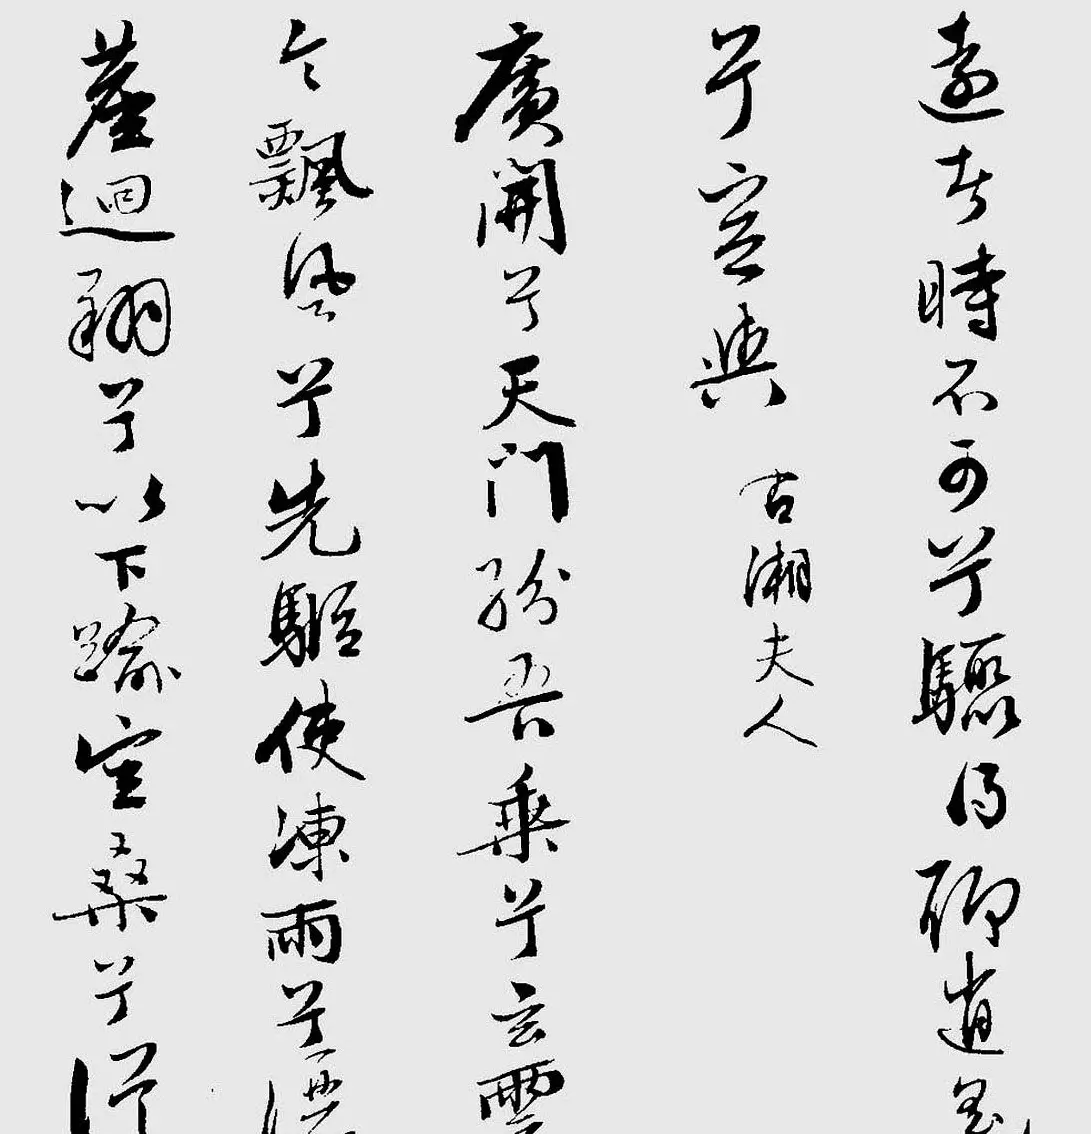 遠者時不可兮驟得聊逍遥
兮容與 右湘夫人
廣開兮天門紛吾乘兮玄雲
令飄風兮先驅使凍雨兮
塵迴翔兮以下踰空桑兮